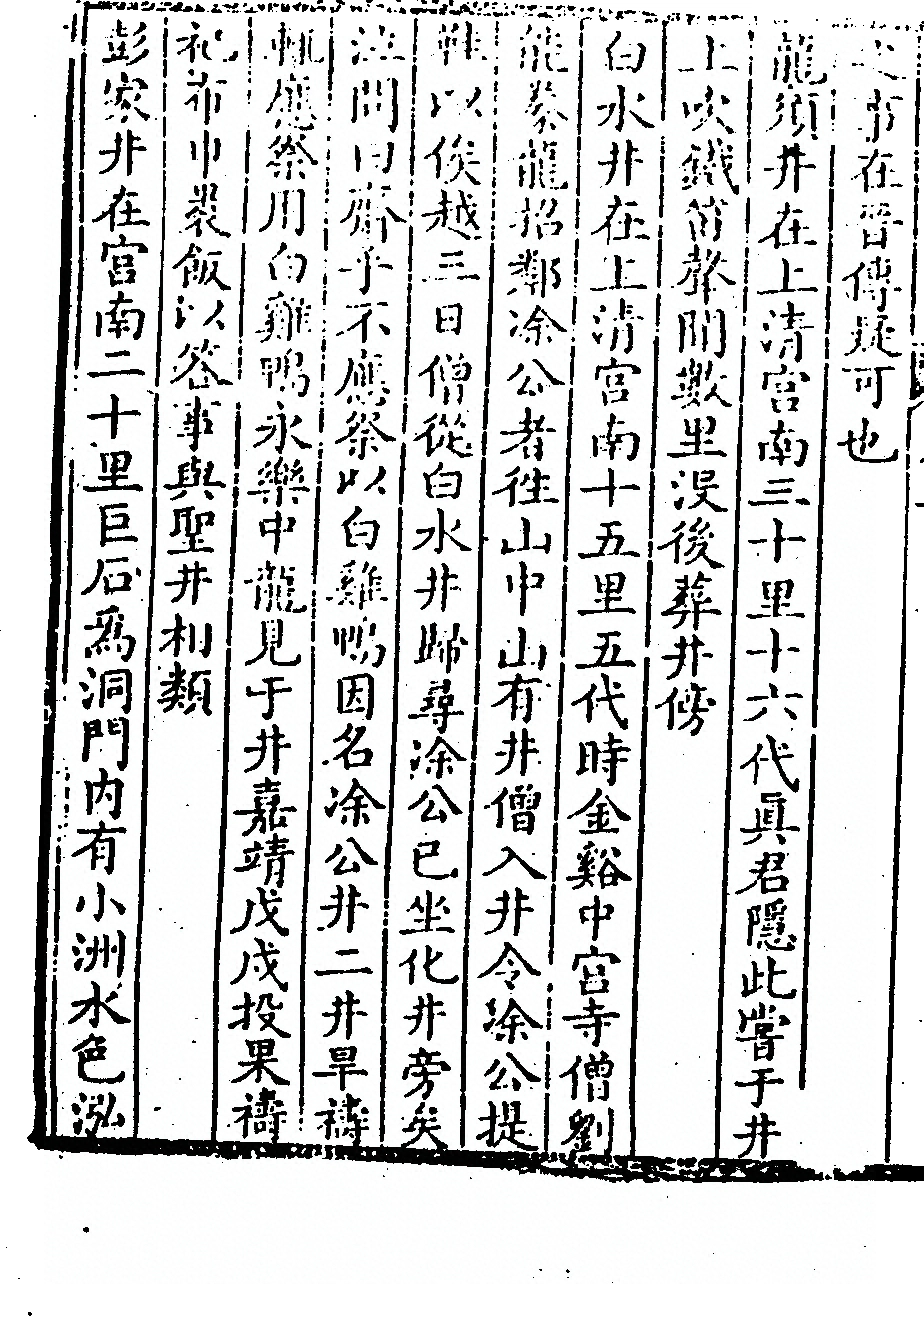 之事在晉傳疑可也
龍須井在上清宮南三十里十六代眞君隱此嘗于井
上吹鐵笛聲聞數里没後葬井傍
白水井在上清宮南十五里五代時金谿中宮寺僧劉
能豢龍招鄰凃公者徃山中山有井僧入井令凃公提
鞋以俟越三日僧從白水井歸尋凃公已坐化井旁矣
泣問曰齋乎不應祭以白雞鴨因名凃公井二井旱禱
輒應祭用白雞鴨永樂中龍見于井嘉靖戊戌投果禱
祀布巾裹飯以答事與聖井相類
彭家井在宮南二十里巨石爲洞門内有小洲水色泓